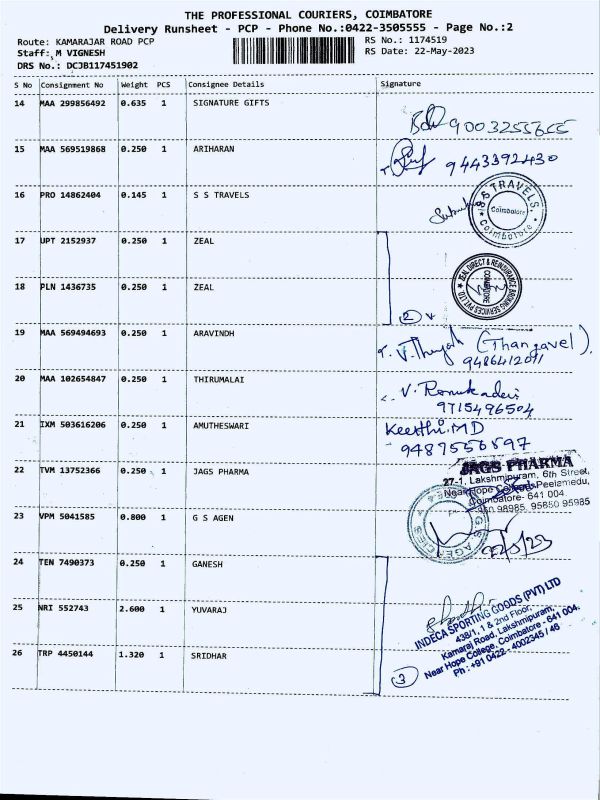 THE PROFESSIONAL COURIERS, COIMBATORE
Delivery Runsheet - PCP - Phone No.:0422-3505555 - Page No.:2
Route: KAMARAJAR ROAD PCP
RS No.: 1174519
Staff: M VIGNESH
RS Date: 22-May-2023
DRS No.: DCJB117451902
S No Consignment No Weight PCS Consignee Details Signature
14 MAA 299856492 0.635 1 SIGNATURE GIFTS
9003255655
15 MAA 569519868 0.250 1 ARIHARAN
9443392430
16 PRO 14862404 0.145 1 S S TRAVELS
S S TRAVELS, Coimbatore
Coimbatore
17 UPT 2152937 0.250 1 ZEAL
18 PLN 1436735 0.250 1 ZEAL
ZEAL DIRECT & REINSURANCE BROKING SERVICES PVT. LTD.
COIMBATORE
2
19 MAA 569494693 0.250 1 ARAVINDH
(Thangavel).
9486412011
20 MAA 102654847 0.250 1 THIRUMALAI
V. Renukadevi
9715496504
21 IXM 503616206 0.250 1 AMUTHESWARI
Keerthi.MD
9487556597
22 TVM 13752366 0.250 1 JAGS PHARMA
JAGS PHARMA
27-1, Lakshmipuram, 6th Street,
Near Hope College, Peelamedu,
Coimbatore- 641 004.
98985, 95850 95985
23 VPM 5041585 0.800 1 G S AGEN
G S AGENCIES
22/5/23
24 TEN 7490373 0.250 1 GANESH
25 NRI 552743 2.600 1 YUVARAJ
INDECA SPORTING GOODS (PVT) LTD
438/1, 1 & 2nd Floor,
Kamaraj Road, Lakshmipuram,
Near Hope College, Coimbatore - 641 004.
Ph : +91 0422 - 4002345 / 46
26 TRP 4450144 1.320 1 SRIDHAR
3